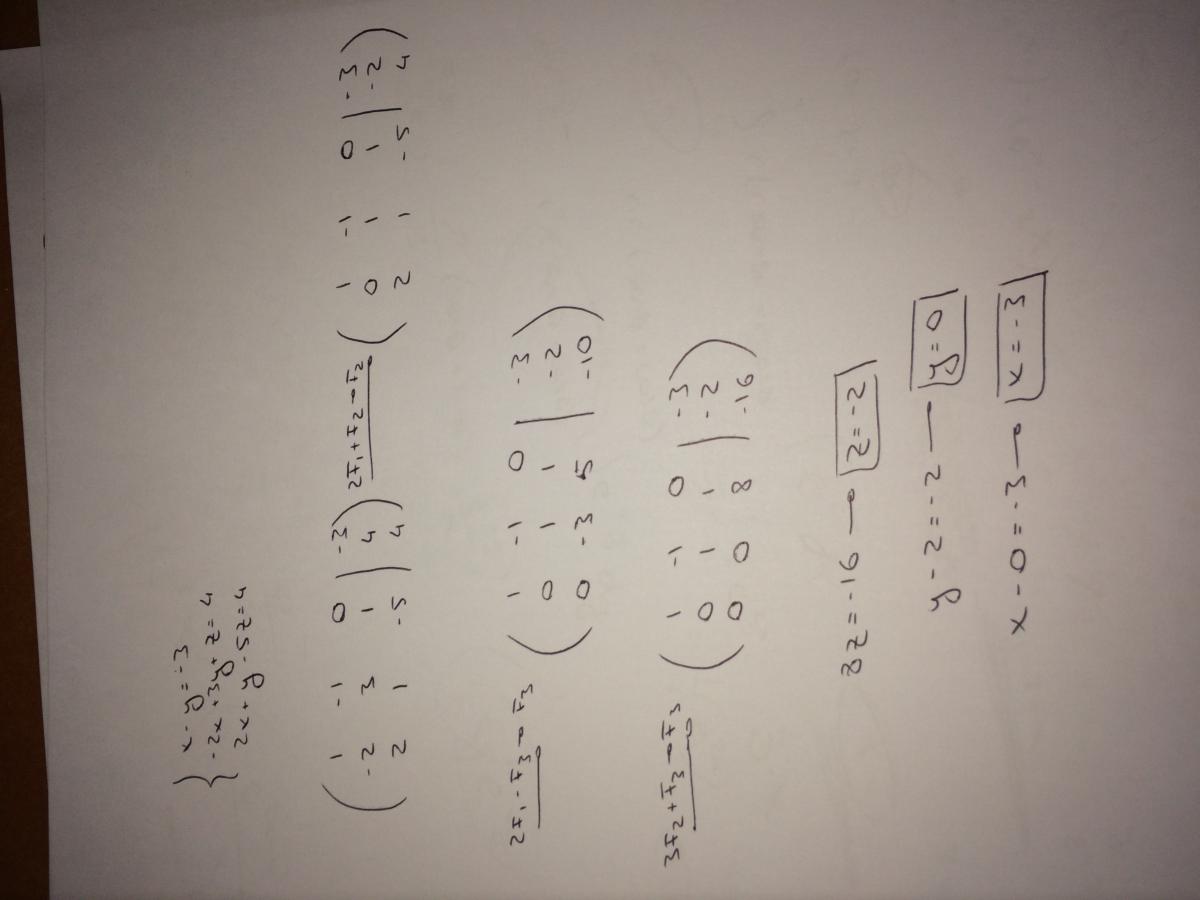 x - y = -3
-2x + 3y + z = 4
2x + y - 5z = 4
( 1 -1 0 | -3 ) 2F1 + F2 → F2 ( 1 -1 0 | -3 )
-2 3 1 | 4 0 1 1 | -2
2 1 -5 | 4 2 1 -5 | 4
2F1 - F3 → F3 ( 1 -1 0 | -3 )
0 1 1 | -2
0 -3 5 | -10
3F2 + F3 → F3 ( 1 -1 0 | -3 )
0 1 1 | -2
0 0 8 | -16
8z = -16 → z = -2
y - 2 = -2 → y = 0
x - 0 = -3 → x = -3